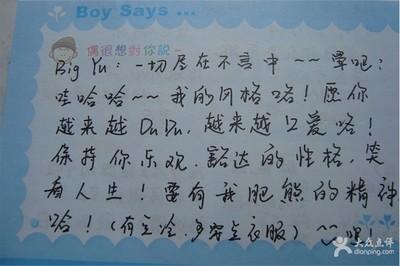 Boy Says ...
偶很想對你説~
Big Yu: 一切尽在不言中~~ 晕吧?
哇哈哈~~ 我的风格咯! 愿你
越来越DuDu, 越来越口爱咯!
保持你乐观、豁达的性格, 笑
看人生! 要有我肥熊的精神
哈! (有点冷, 多穿点衣服) ~~ 嘿!
大众点评
dianping.com